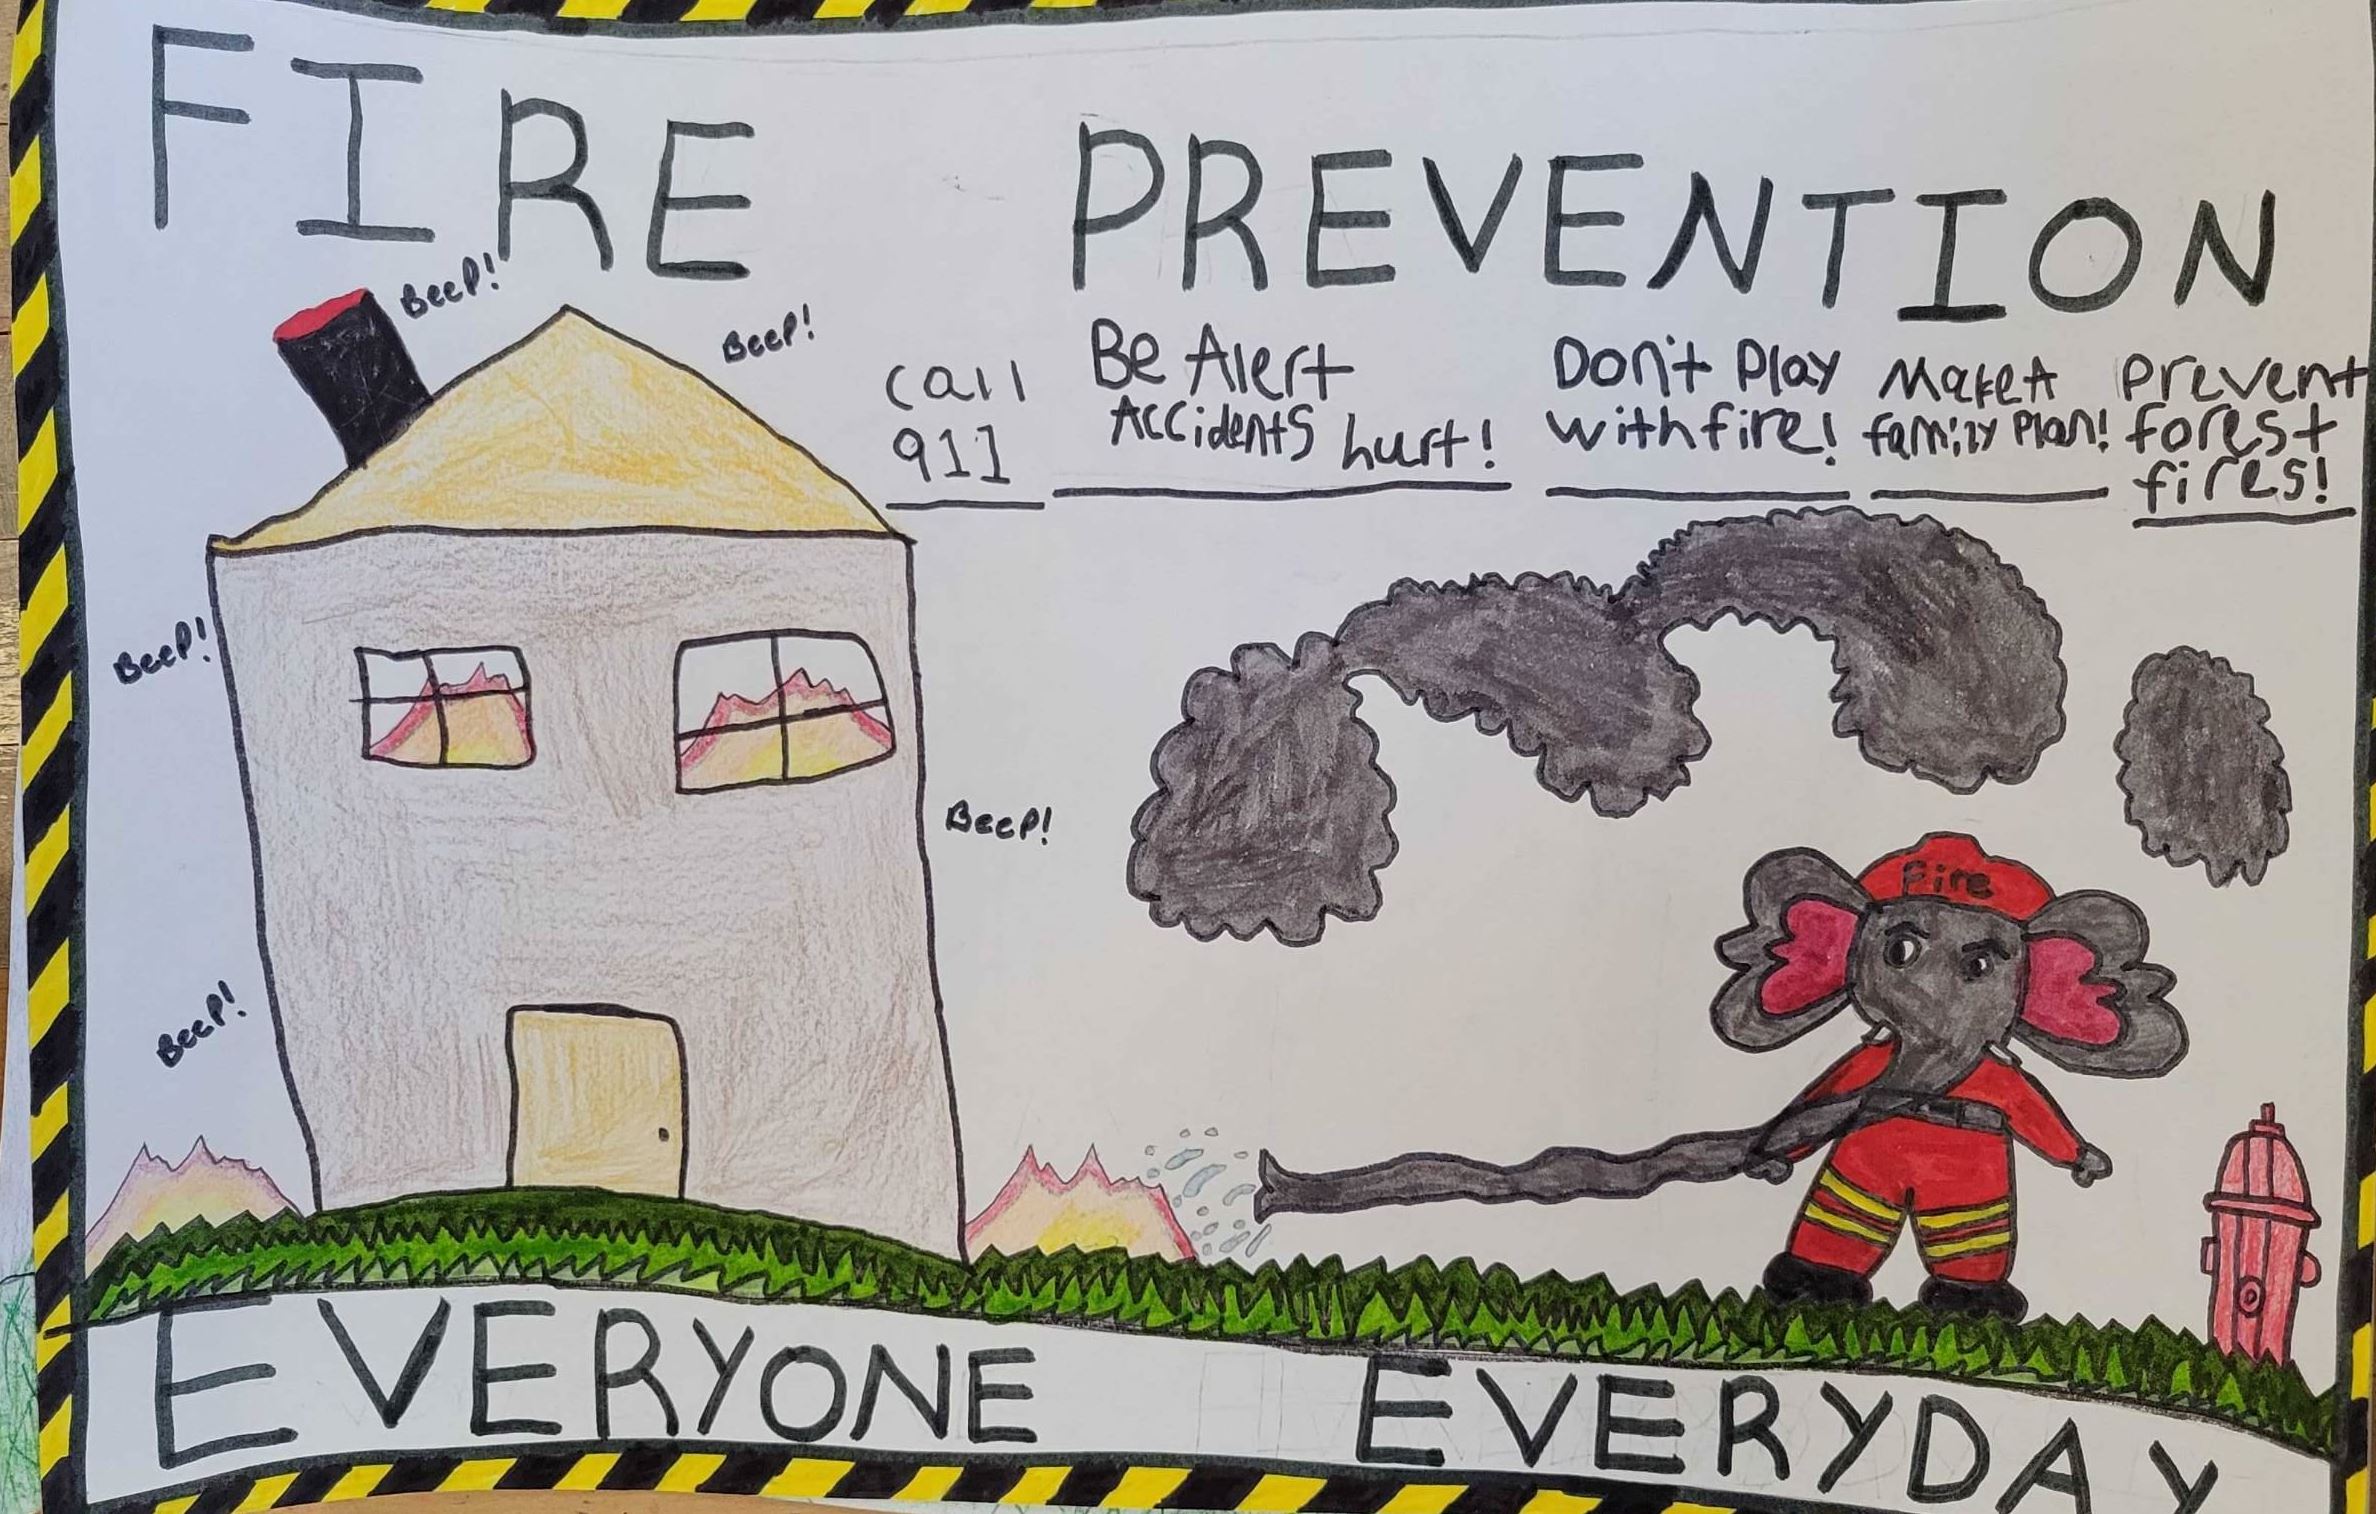 FIRE PREVENTION
BeeP!
BeeP!
call
911
Be Alert
Accidents hurt!
Don't Play
with fire!
Make A
family Plan!
Prevent
forest
fires!
BeeP!
BeeP!
Fire
BeeP!
EVERYONE EVERYDAY